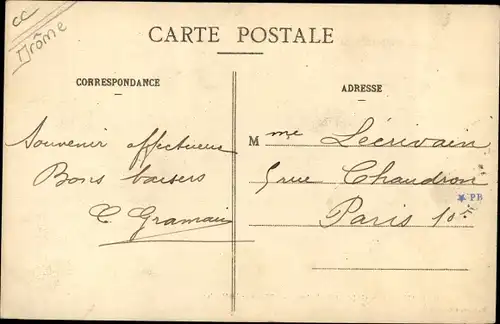 CC
Drôme
CARTE POSTALE
CORRESPONDANCE
ADRESSE
Souvenir affectueux
Bons baisers
C Gramain
Mme Lécrivain
5 rue Chaudron
Paris 10e
PB